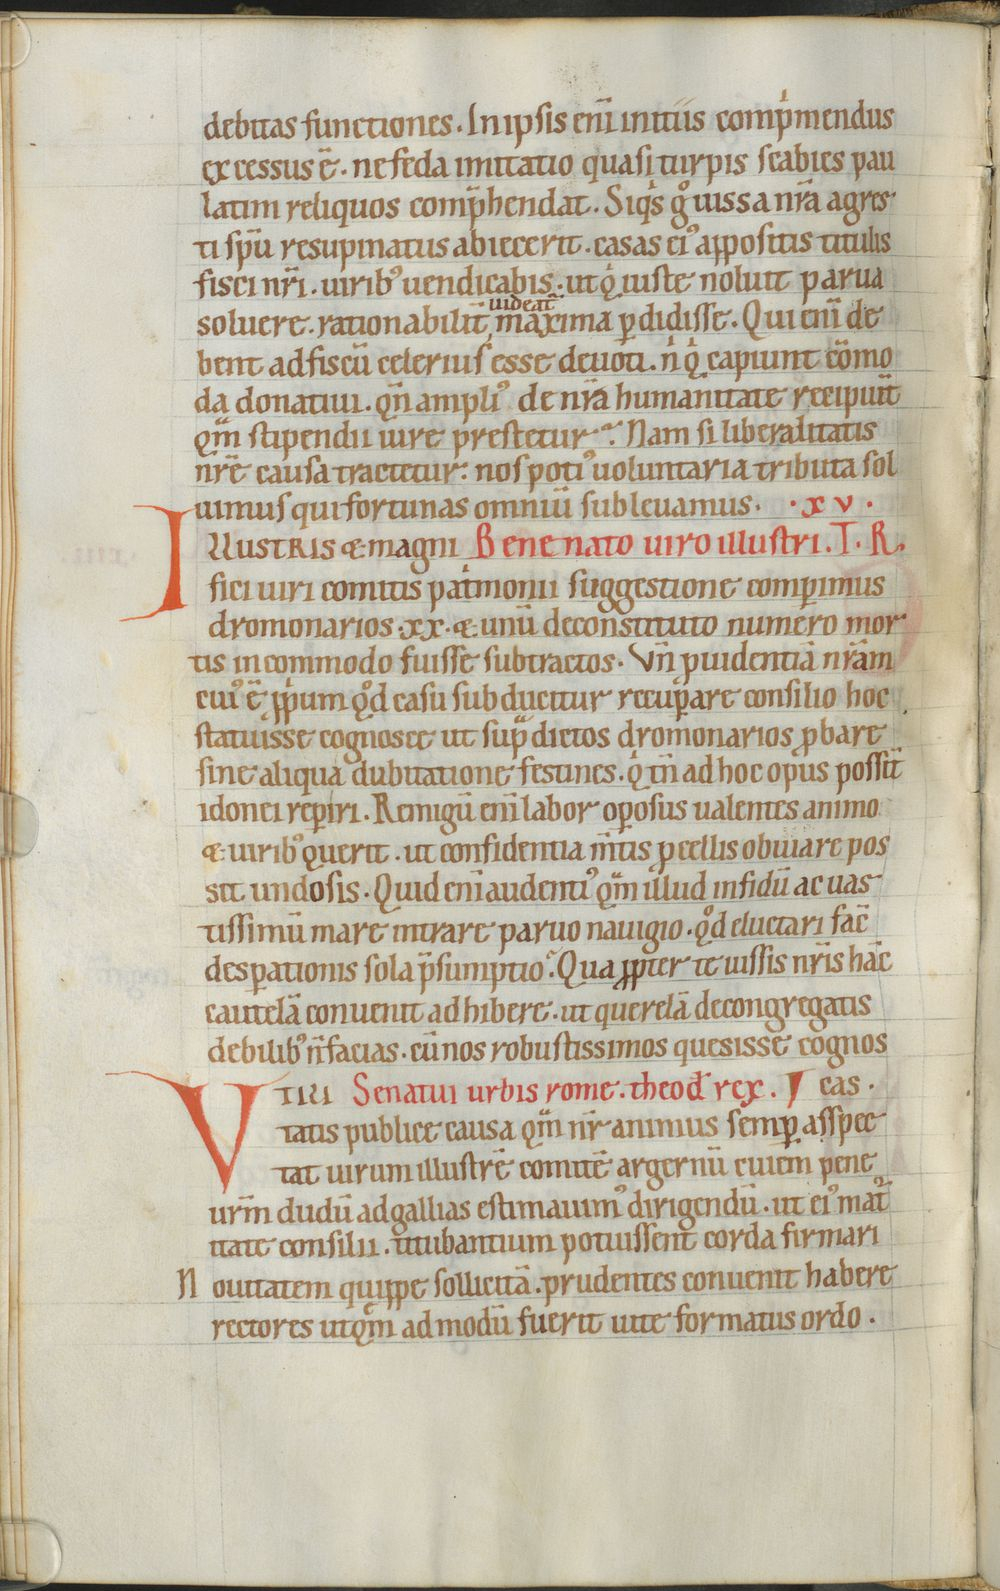 debitas functiones. In ipsis eni̅ initiis comp̍mendus
excessus e̅. ne feda imitatio quasi turpis scabies pau
latim reliquos comp̅hendat. Siq̍s gͦ iussa nr̅a agres
ti sp̅u resupinatus abiecerit. casas ei᾽ appositis titulis
fisci nr̅i. uirib᾽ uendicabis. ut q̍ iuste noluit parua
uideat̅
soluere. rationabilit̅ maxima ꝑdidisse. Qui eni̅ de
bent ad fiscu̅ celerius esse deuoti. n̍ q̍ capiunt co̅mo
da donatiui. qn̅ ampli᾽ de nr̅a humanitate recipiu̅t
qm̅ stipendii iure prestetur. Nam si liberalitatis
nr̅e causa tractetur: nos poti᾽ uoluntaria tributa sol
uimus qui fortunas omniu̅ subleuamus. .xv.
Illustris & magni Benenato uiro illustri. T. R.
fici uiri comitis pat̍monii suggestione comꝑimus
dromonarios .xx. & unu̅ de constituto numero mor
tis incommodo fuisse subtractos. Vn̅ ꝓuidentia̅ nr̅am
cui᾽ e̅ ꝓprium qͦd casu subducitur recuꝑare consilio hoc
statuisse cognosce ut sup̅dictos dromonarios ꝓbare
sine aliqua dubitatione festines. q̍ tn̅ ad hoc opus possi̅t
idonei reꝑiri. Remigu̅ eni̅ labor oꝑosus ualentes animo
& uirib᾽ querit. ut confidentia m̅tis ꝓcellis obuiare pos
sit undosis. Quid eni̅ audenti᾽ qm̅ illud infidu̅ ac uas
tissimu̅ mare intrare paruo nauigio. qͦd eluctari fac̅
desꝑationis sola p̅sumptio. Qua ꝓpter te iussis nr̅is ha̅c
cautela̅ conuenit adhibere. ut querela̅ de congregatis
debilib᾽ n̅ facias. cu̅ nos robustissimos quesisse cognos
Vtili Senatui urbis rome. theod̅ rex. cas.
tatis publice causa qm̅ nr̅ animus semꝑ asspec
tat uirum illustre̅ comite̅ argernu̅ cuiem pene
urm̅ dudu̅ ad gallias estimauim᾽ dirigendu̅. ut ei᾽ mat᷑
itate consilii. titubantium potuissent corda firmari
Nouitatem quippe sollicita̅. prudentes conuenit habere
rectores ut qm̍ admodu̅ fuerit uite formatus ordo.